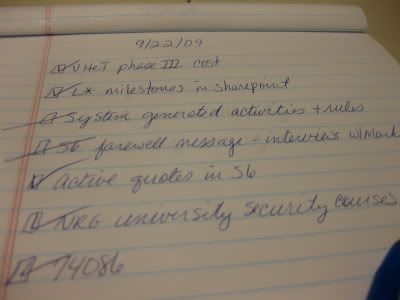 9/22/09
UHCT phase III cost
LX milestones in sharepoint
System generated activities + rules
S6 farewell message - interviews w/Mark
Active quotes in S6
NRG university security courses
74086